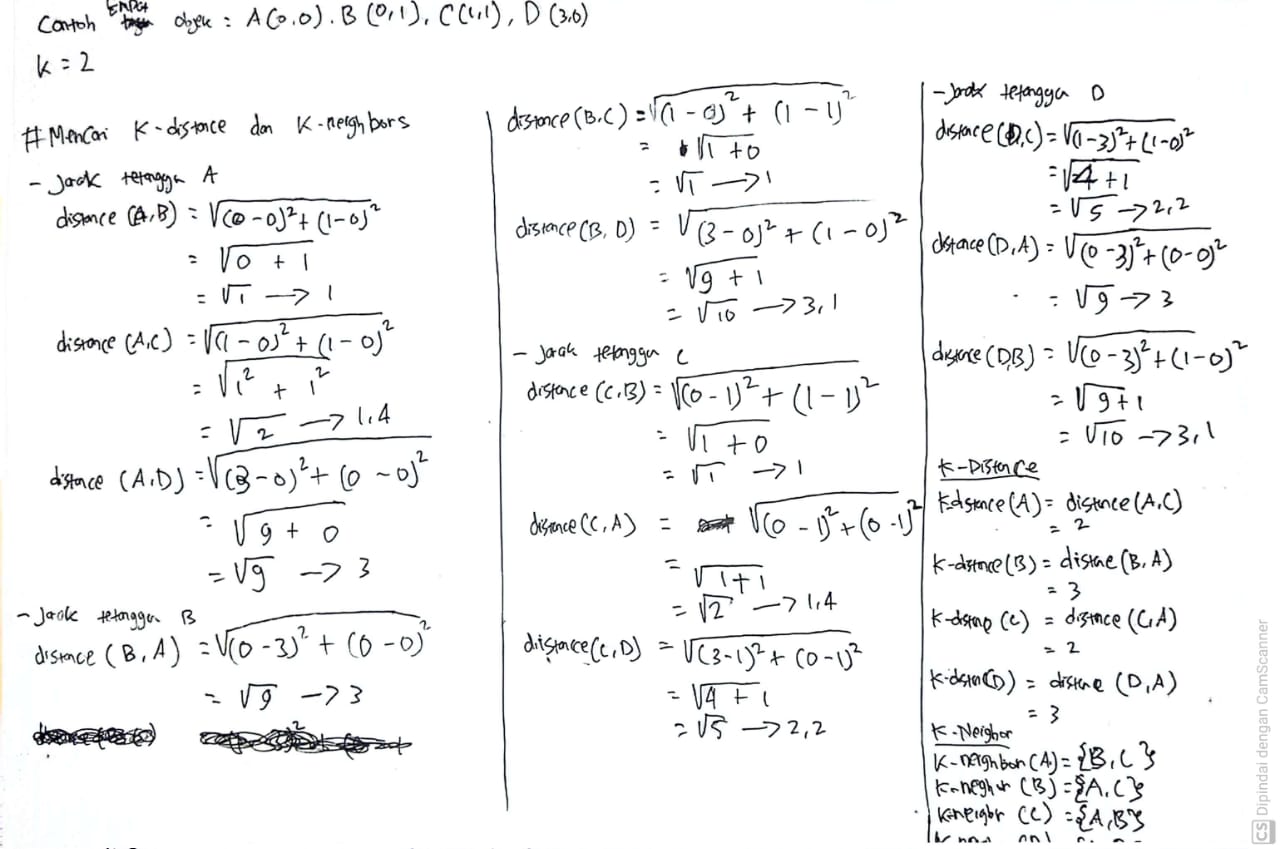 Contoh Empat objek : A(0,0). B (0,1), C(1,1), D (3,0)
k = 2
# Mencari K-distance dan K-neighbors
- Jarak tetangga A
distance (A,B) = √(0-0)²+(1-0)²
= √0 + 1
= √1 → 1
distance (A,C) = √(1-0)²+(1-0)²
= √1² + 1²
= √2 → 1,4
distance (A,D) = √(3-0)²+(0-0)²
= √9 + 0
= √9 → 3
- Jarak tetangga B
distance (B,A) = √(0-3)² + (0-0)²
= √9 → 3
distance (B,C) = √(1-0)²+(1-1)²
= √1 + 0
= √1 → 1
distance (B,D) = √(3-0)²+(1-0)²
= √9 + 1
= √10 → 3,1
- Jarak tetangga C
distance (C,B) = √(0-1)²+(1-1)²
= √1 + 0
= √1 → 1
distance (C,A) = √(0-1)²+(0-1)²
= √1+1
= √2 → 1,4
distance (C,D) = √(3-1)²+(0-1)²
= √4 + 1
= √5 → 2,2
- Jarak tetangga D
distance (D,C) = √(1-3)²+(1-0)²
= √4 + 1
= √5 → 2,2
distance (D,A) = √(0-3)²+(0-0)²
= √9 → 3
distance (D,B) = √(0-3)²+(1-0)²
= √9+1
= √10 → 3,1
K-Distance
K-distance (A) = distance (A,C)
= 2
K-distance (B) = distance (B,A)
= 3
K-distance (C) = distance (C,A)
= 2
K-distan(D) = distance (D,A)
= 3
K-Neighbor
K-neighbor (A) = {B,C}
K-neghbr (B) = {A,C}
K-neigbr (C) = {A,B}
CS Dipindai dengan CamScanner